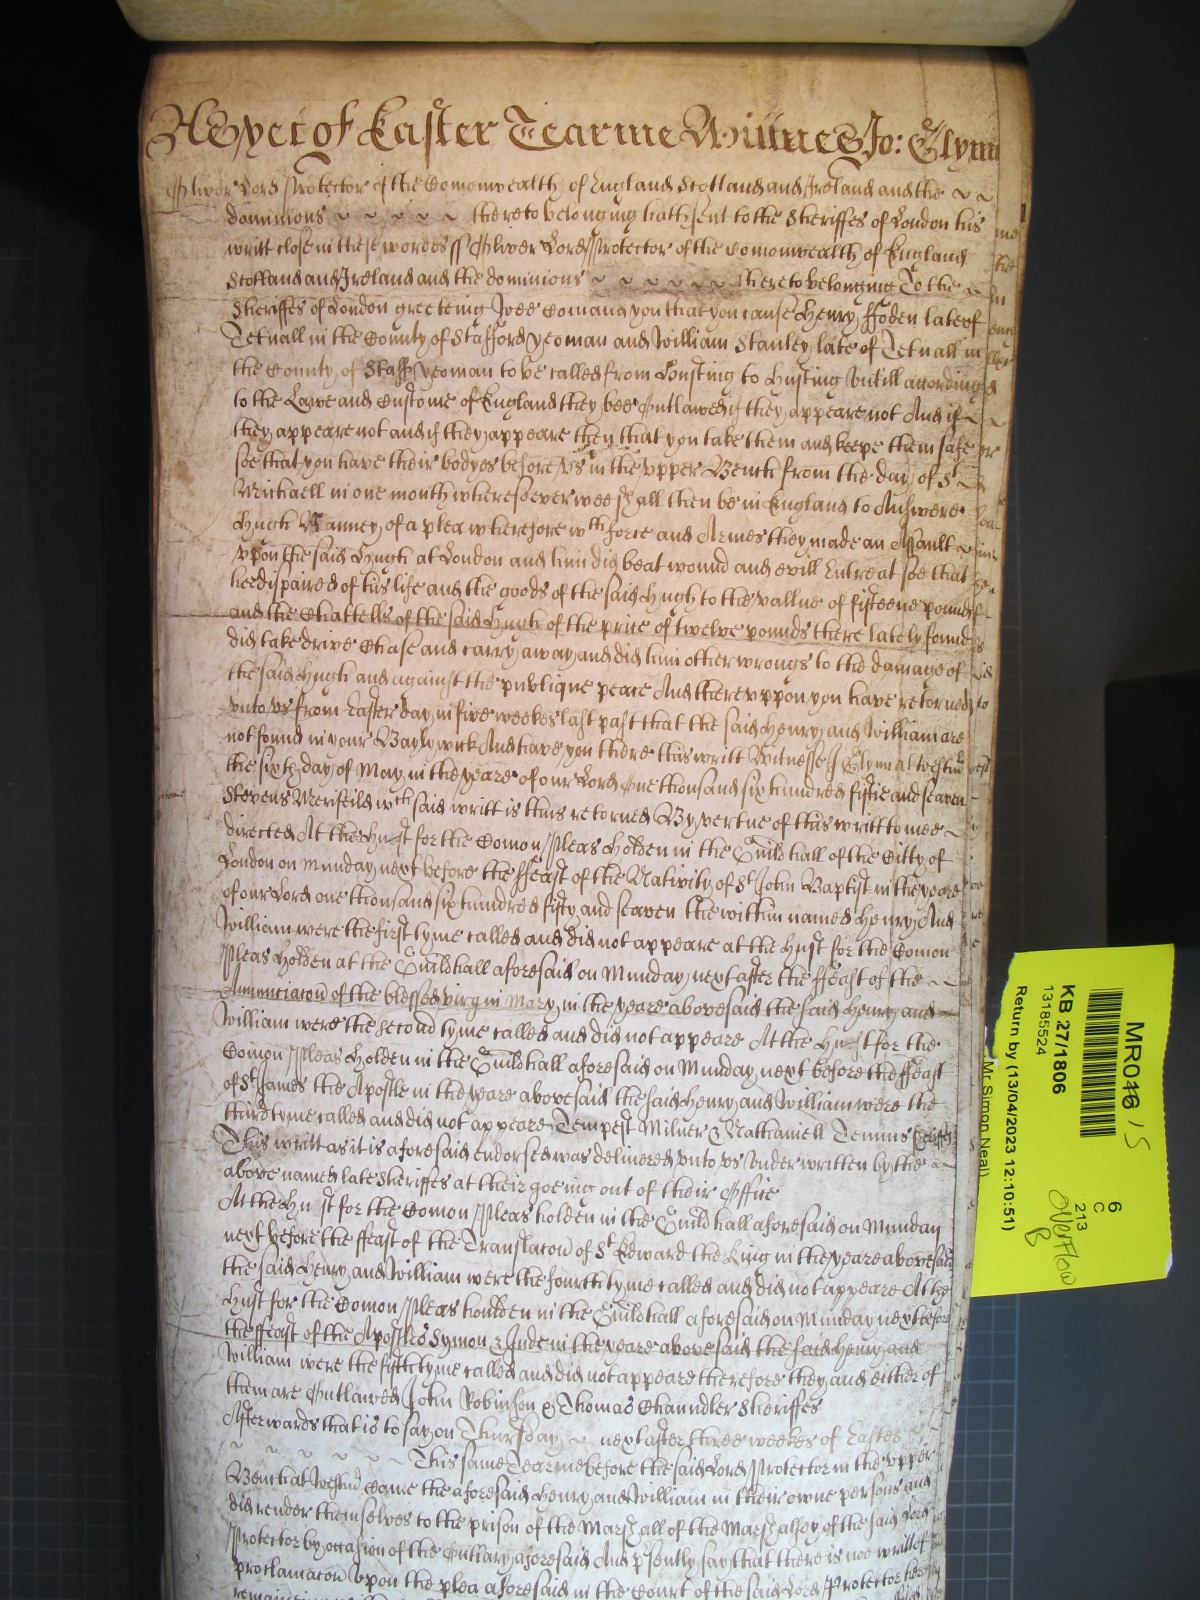 As yet of Easter Tearme Wittnes Jo: Glynn
Oliver Lord Protector of the Comonwealth of England Scotland and Ireland and the ~ ~
dominions ~ ~ ~ ~ ~ thereto belonging hath sent to the Sheriffes of London his
writt close in these wordes ss Oliver Lord Protector of the Comonwealth of England
Scotland and Ireland and the dominions ~ ~ ~ ~ ~ ~ thereto belonging To the ~
Sheriffes of London greeteing Wee Comand you that you cause Henry ffoden late of
Tetnall in the County of Stafford yeoman and William Stanley late of Tetnall in
the County of Staff yeoman to be called from Husting to Husting Untill according
to the Lawe and Custome of England they bee Outlawed if they appeare not And if ~
they appeare not and if they appeare then that you take them and keepe them safe
soe that you have their bodyes before us in the upper Bench from the day of St ~
Michaell in one month wheresoever wee shall then be in England to Answere
Hugh Wanney of a plea wherefore wth force and Armes they made an Assault ~
upon the said Hugh at London and him did beat wound and evill Entreat soe that
hee dispaired of his life and the goods of the said Hugh to the vallue of fifteene pounds
and the Chattells of the said Hugh of the price of twelve pounds there lately found
did take drive Chase and carry away and did him other wrongs to the damage of
the said Hugh and against the publique peace And thereuppon you have retorned
unto us from Easter day in five weekes last past that the said Henry and William are
not found in your Baylywick And have you there this writt Witnesse J Glynn at Westm
the sixte day of May in the yeare of our Lord One thousand six hundred fiftie and seaven
Stevens Merifeild wch said writt is thus retorned By vertue of this writt to mee ~
directed At the Hust for the Comon Pleas Holden in the Guildhall of the Citty of
London on Munday next before the ffeast of the Nativity of St John Baptist in the yeare
of our Lord one thousand six hundred fifty and seaven the within named Henry And
William were the first tyme called and did not appeare at the Hust for the Comon
Pleas Holden at the Guildhall aforesaid on Munday next after the ffeast of the ~ ~
Annunciacon of the blessed virgin Mary in the yeare abovesaid the said Henry and
William were the second tyme called and did not appeare At the Hust for the
Comon Pleas Holden in the Guildhall aforesaid on Munday next before the ffeast
of St James the Apostle in the yeare abovesaid the said Henry and William were the
third tyme called and did not appeare Tempest Milner & Nathaniell Temms
This writt as it is aforesaid endorsed was delivered unto us Underwritten by the ~
above named late Sheriffes at their goeing out of their Office
At the Hust for the Comon Pleas holden in the Guildhall aforesaid on Munday
next before the ffeast of the Translacon of St Edward the King in the yeare abovesaid
the said Henry and William were the fourth tyme called and did not appeare At the
Hust for the Comon Pleas houlden in the Guildhall aforesaid on Munday next before
the ffeast of the Apostles Symon & Jude in the yeare abovesaid the said Henry and
William were the fifth tyme called and did not appeare therefore they and either of
them are Outlawed John Robinson & Thomas Chaundler Sheriffes
Afterwards that is to say on Thursday ~ next after three weekes of Easter
~ ~ ~ ~ ~ This same Tearme before the said Lord Protector in the upper
Bench at Westmd Came the aforesaid Henry and William in their owne persons and
did render themselves to the prison of the Marshall of the Marshalsey of the said Lord
Protector by occasion of the Outlary aforesaid And psently say that there is noe writt of
proclamacon upon the plea aforesaid in the Court of the said Lord Protector
MR046 15
KB 27/1806
13185524
Return by (13/04/2023 12:10:51)
(Mr Simon Neal)
6
C
213
overflow
B